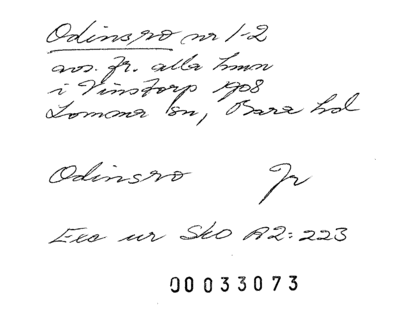 Odinsro nr 1-2
avs. fr. alla hmn
i Vinstorp 1908
Lomma sn, Bara hd
Odinsro Jr
Exc ur Sko A2: 223
00033073